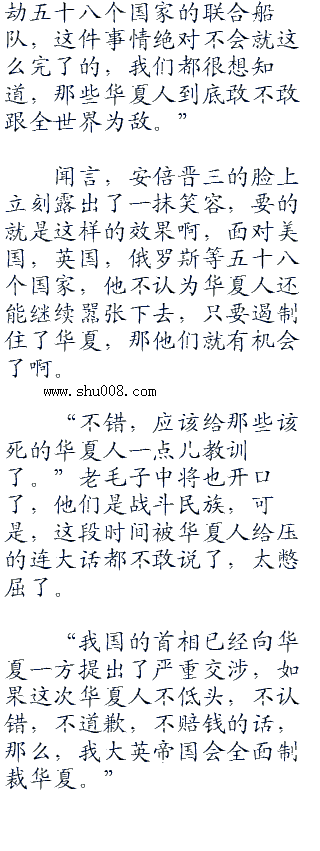 劫五十八个国家的联合船
队，这件事情绝对不会就这
么完了的，我们都很想知
道，那些华夏人到底敢不敢
跟全世界为敌。”
闻言，安倍晋三的脸上
立刻露出了一抹笑容，要的
就是这样的效果啊，面对美
国，英国，俄罗斯等五十八
个国家，他不认为华夏人还
能继续嚣张下去，只要遏制
住了华夏，那他们就有机会
了啊。
www.shu008.com
“不错，应该给那些该
死的华夏人一点儿教训
了。”老毛子中将也开口
了，他们是战斗民族，可
是，这段时间被华夏人给压
的连大话都不敢说了，太憋
屈了。
“我国的首相已经向华
夏一方提出了严重交涉，如
果这次华夏人不低头，不认
错，不道歉，不赔钱的话，
那么，我大英帝国会全面制
裁华夏。”